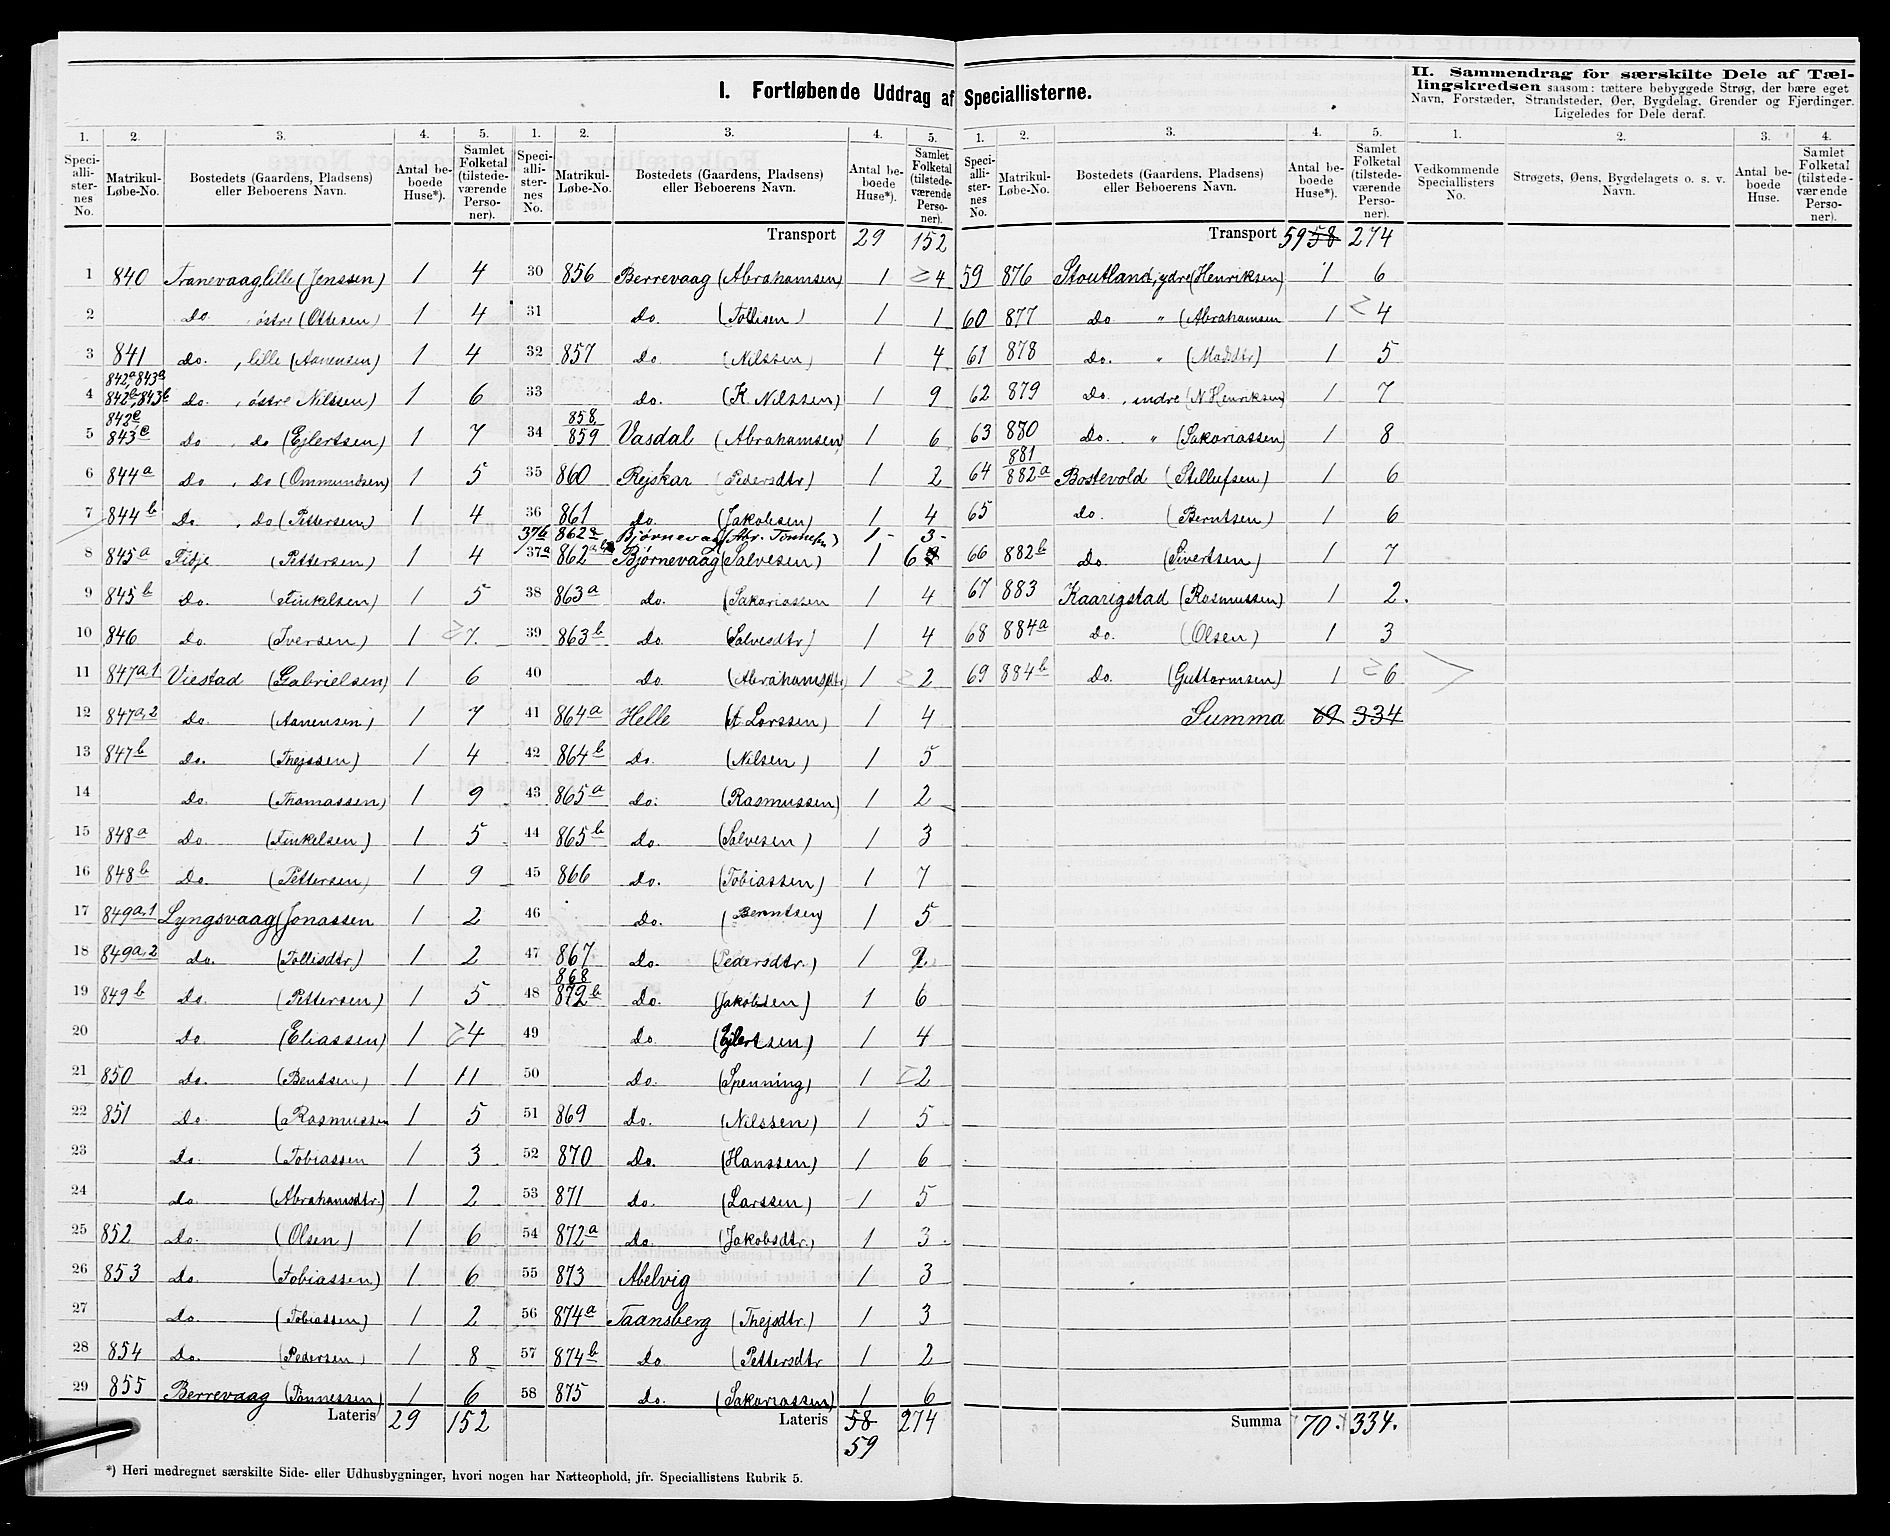 I. Fortløbende Uddrag af Speciallisterne.
II. Sammendrag for særskilte Dele af Tæl-
lingskredsen saasom: tættere bebyggede Strøg, der bære eget
Navn, Forstæder, Strandsteder, Øer, Bygdelag, Grender og Fjerdinger.
Ligeledes for Dele deraf.
1. 2. 3. 4. 5. 1. 2. 3. 4. 5.
Speciallisternes No. Matrikul-Løbe-No. Bostedets (Gaardens, Pladsens) eller Beboerens Navn. Antal beboede Huse*). Samlet Folketal (tilstedeværende Personer).
Transport 29 152
1 840 Tranevaag lille (Jenssen) 1 4
2 do. østre (Ottesen) 1 4
3 841 do. , lille (Aanensen) 1 4
4 842a, 843a 842b, 843b do. , østre Nilssen) 1 6
5 842c 843c do , do (Ejlertsen) 1 7
6 844a do , do (Ommundsen) 1 5
7 844b do. , do (Pettersen) 1 4
8 845a Fidje (Pettersen) 1 4
9 845b do. (Finkelsen) 1 5
10 846 do. (Iversen) 1 7.
11 847a,1 Viestad (Gabrielsen) 1 6
12 847a,2 do. (Aanensen) 1 7
13 847b do. (Thejssen) 1 4
14 do. (Thomassen) 1 9
15 848a do. (Finkelsen) 1 5
16 848b do. (Pettersen) 1 9
17 849a,1 Lyngsvaag (Jonassen 1 2
18 849a,2 do. (Tollisdtr) 1 2
19 849b do. (Pettersen) 1 5
20 do (Eliassen) 1 4
21 850 do. (Bentsen) 1 11
22 851 do. (Rasmussen 1 5
23 do. (Tobiassen 1 3
24 do. (Abrahamsdtr.) 1 2
25 852 do. (Olsen) 1 6
26 853 do. (Tobiassen) 1 6
27 do. (Tobiassen) 1 2
28 854 do. (Pedersen) 1 8
29 855 Berrevaag (Tønnessen) 1 6
Lateris 29 152
30 856 Berrevaag (Abrahamsen) 1 4
31 do. (Tollisen) 1 1
32 857 do (Nilssen) 1 4
33 do. (K. Nilssen) 1 9
34 858. 859 Vasdal (Abrahamsen) 1 6
35 860 Rejskar (Pedersdtr) 1 2
36 861 do. (Jakobsen) 1 4
37b 862a Bjørnevaag (Abr. Tønnesen) 1 3
37a 862a Bjørnevaag (Salvesen) 1 6
38 863a do. (Sakariassen 1 4
39 863b do. (Salvesdtr) 1 4
40 do. (Abrahamsdtr) 1 2
41 864a Helle (A Larssen) 1 4
42 864b do. (Nilsen) 1 5
43 865a do. (Rasmussen) 1 2
44 865b do. (Salvesen) 1 3
45 866 do. (Tobiassen) 1 7
46 do. (Berntsen) 1 5
47 867 do. (Pedersdtr.) 1 2
48 868 872b do. (Jakobsen) 1 6
49 do. (Ejlertsen) 1 4
50 do. (Spenning) 1 2
51 869 do. (Nilssen) 1 5
52 870 do. (Hanssen) 1 6
53 871 do. (Larssen) 1 5
54 872a do. (Jakobsdtr.) 1 3
55 873 Abelvig 1 3
56 874a Taansberg (Thejsdtr.) 1 3
57 874b do (Pettersdtr 1 2
58 875 do. (Sakariassen) 1 6
Lateris 58 274
59
1. 2. 3. 4. 5.
Speciallisternes No. Matrikul-Løbe-No. Bostedets (Gaardens, Pladsens) eller Beboerens Navn. Antal beboede Huse*). Samlet Folketal (tilstedeværende Personer).
Transport 59 58 274
59 876 Stoutland, ydre (Henriksen) 1 6
60 877 do " (Abrahamsen 1 4
61 878 do. " (Madsdtr) 1 5
62 879 do. , indre (N. Henriksen) 1 7
63 880 do. " (Sakariassen) 1 8
64 881 882a Bostevold (Stillufsen) 1 6
65 do. (Berntsen) 1 6
66 882b do. (Sivertsen) 1 7
67 883 Kaarigstad (Rasmussen) 1 2.
68 884a do. (Olsen) 1 3
69 884b do. (Guttormsen) 1 6
Summa 69 334
Summa 70. 334.
1. 2. 3. 4.
Vedkommende Speciallisters No. Strøgets, Øens, Bygdelagets o. s. v. Navn. Antal beboede Huse. Samlet Folketal (tilstedeværende Personer).
*) Heri medregnet særskilte Side- eller Udhusbygninger, hvori nogen har Natteophold, jfr. Speciallistens Rubrik 5.